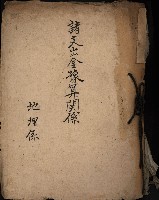 諸文出金豫算関係
地理係